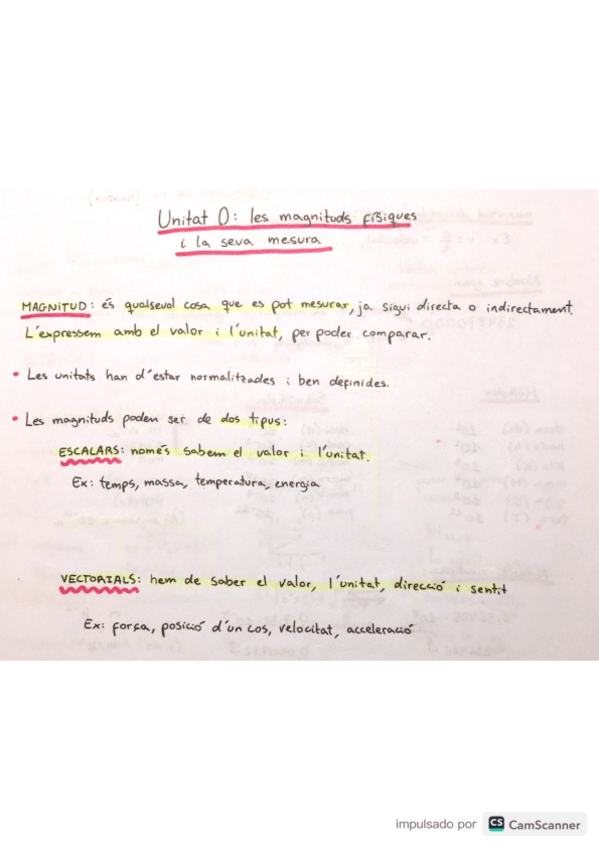 Unitat 0: les magnituds físiques
i la seva mesura
MAGNITUD: és qualsevol cosa que es pot mesurar, ja sigui directa o indirectament.
L'expressem amb el valor i l'unitat, per poder comparar.
• Les unitats han d'estar normalitzades i ben definides.
• Les magnituds poden ser de dos tipus:
ESCALARS: només sabem el valor i l'unitat.
Ex: temps, massa, temperatura, energia
VECTORIALS: hem de saber el valor, l'unitat, direcció i sentit
Ex: força, posició d'un cos, velocitat, acceleració
impulsado por CS CamScanner